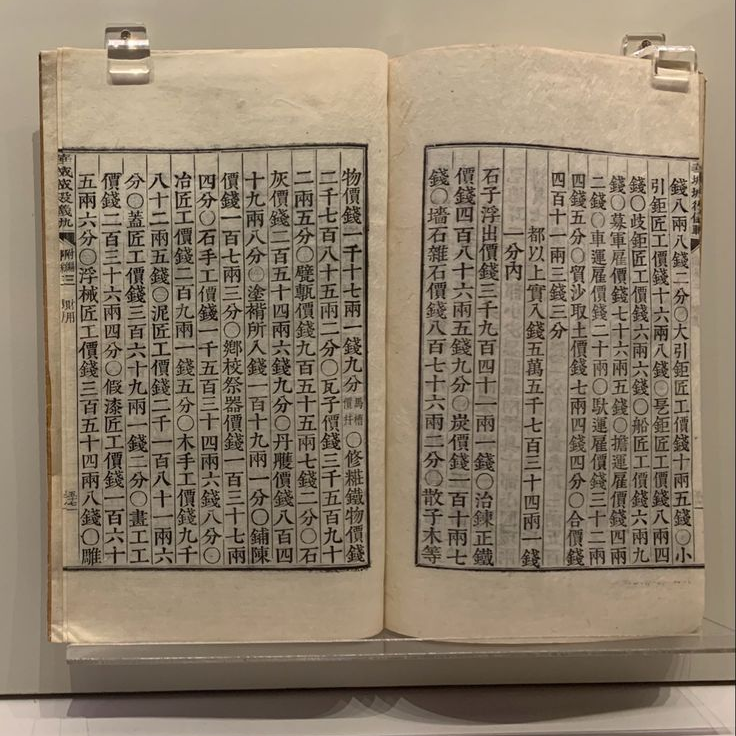 錢八兩八錢二分○大引鉅匠工價錢十兩五錢○小
引鉅匠工價錢十六兩八錢○乼鉅匠工價錢八兩四
錢○歧鉅匠工價錢六兩六錢○船匠工價錢六兩九
錢○募軍雇價錢七十六兩五錢○擔運雇價錢四兩
二錢○車運雇價錢二十兩○馱運雇價錢三十二兩
四錢五分○貿沙取土價錢七兩四錢四分○合價錢
四百十一兩三錢三分
都以上實入錢五萬五千七百三十四兩一錢
一分內
石子浮出價錢三千九百四十一兩一錢○冶鍊正鐵
價錢四百八十六兩五錢九分○炭價錢二百十兩七
錢○墻石雜石價錢八百七十六兩二分○散子木等
物價錢一千十七兩一錢九分○修粧鐵物價錢
二千七百八十五兩二分○瓦子價錢三千五百九十
二兩五分○甓甎價錢九百五十五兩七錢二分○石
灰價錢二百五十四兩六錢九分○丹雘價錢八百四
十九兩八分○塗褙所入錢一百十九兩一分○鋪陳
價錢一百七兩三分○鄕校祭器價錢一百三十七兩
四分○石手工價錢一千五百三十四兩六錢八分○
冶匠工價錢二百九兩一錢五分○木手工價錢九千
八十二兩五錢○泥匠工價錢二千一百八十一兩六
分○蓋匠工價錢三百六十九兩一錢二分○畫工工
價錢二百三十六兩四分○假漆匠工價錢一百六十
五兩六分○浮械匠工價錢三百五十四兩八錢○雕
附編三